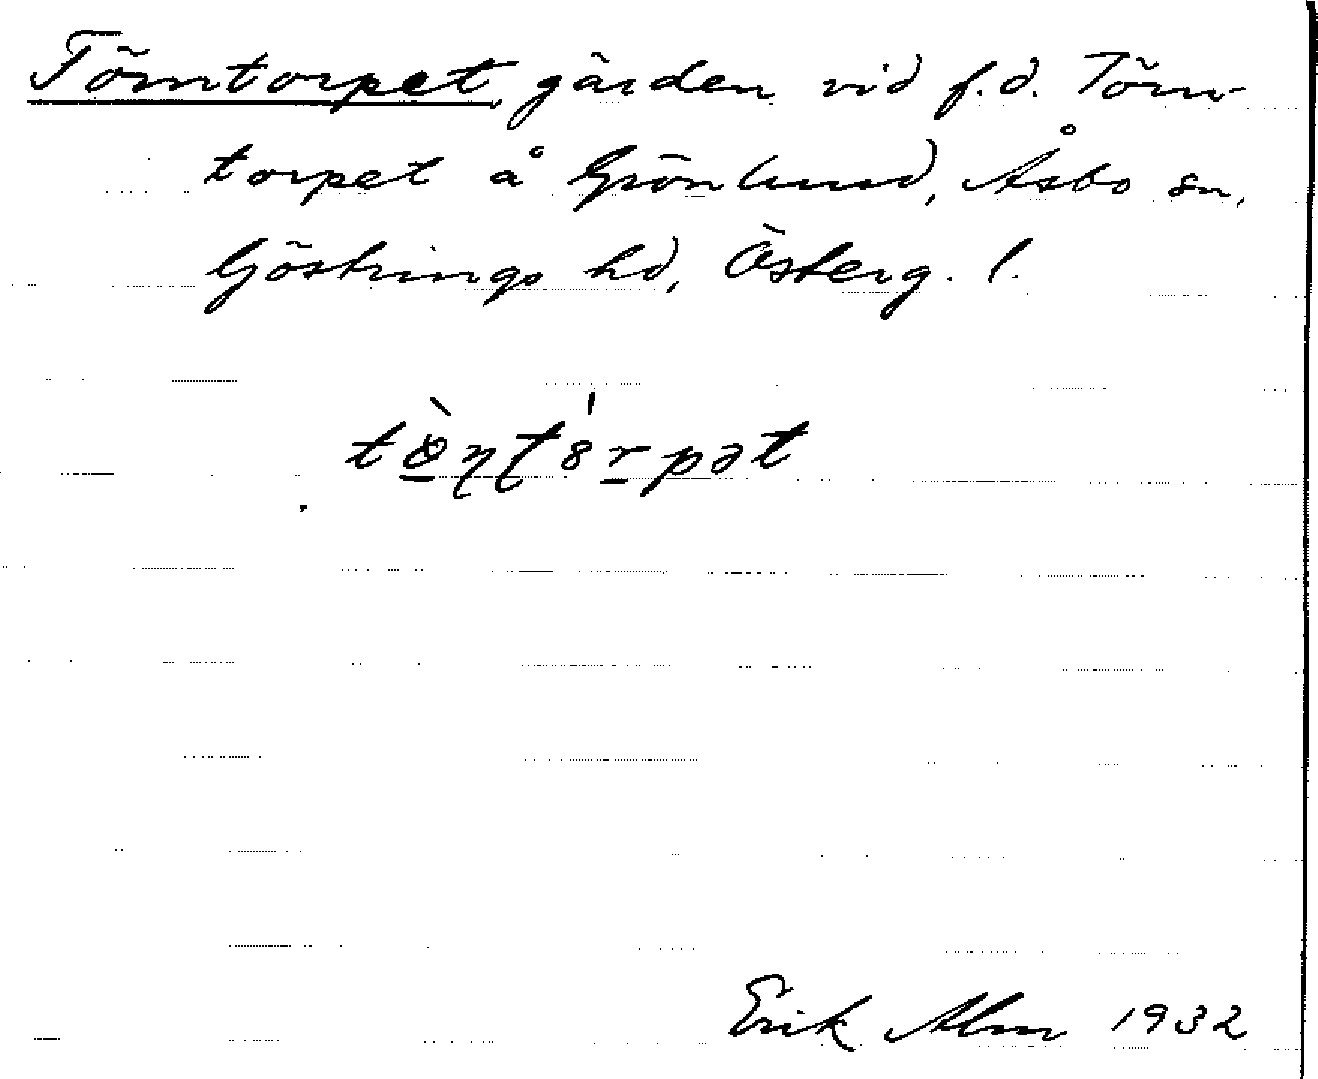 Törntorpet, gärden vid f.d. Törn-
torpet å Grönlund, Åsbo sn,
Göstrings hd, Österg. l.
Erik Alm 1932